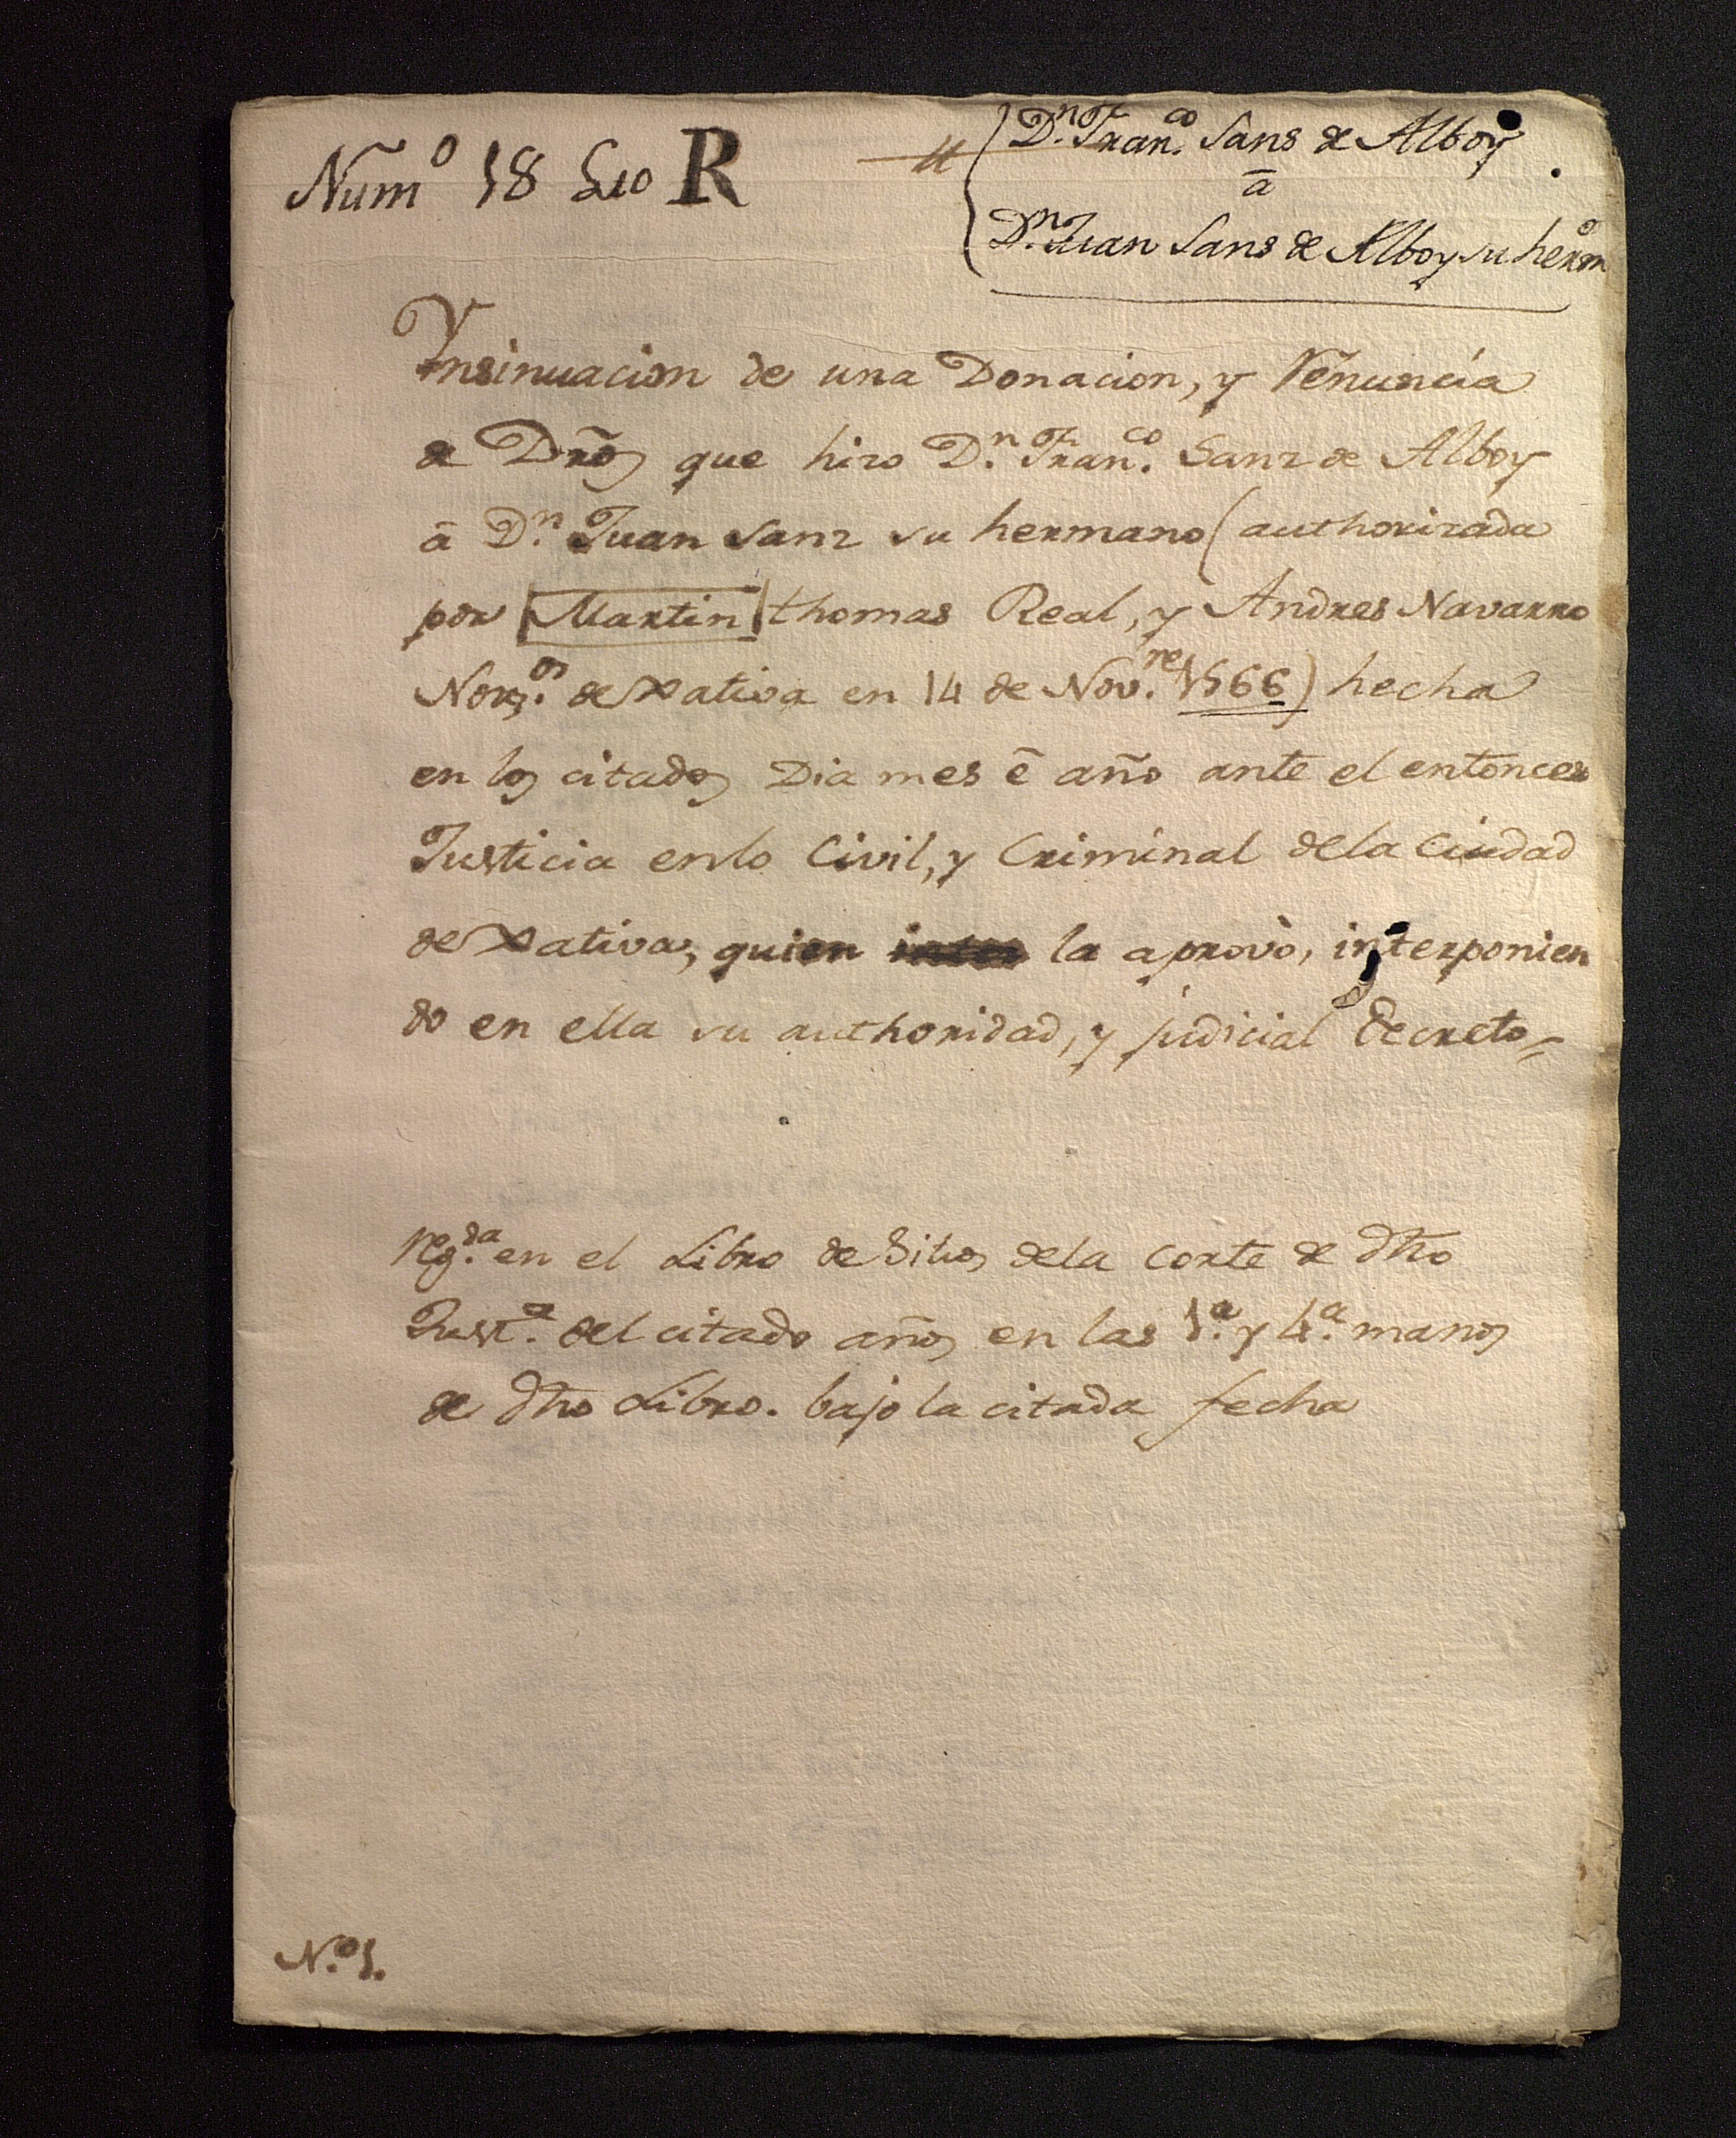 Num.º 18 Lio R
D.ⁿ Fran.ᶜᵒ Sans de Alboy
â
D.ⁿ Juan Sans de Alboy su hermº
Ynsinuacion de una Donacion, y Renuncia
de Dr̃os que hizo D.ⁿ Fran.ᶜᵒ Sanz de Alboy
â D.ⁿ Juan Sanz su hermano (authorizada
por Martin thomas Real, y Andres Navarro
Not.ᵒˢ de Xativa en 14 de Nov.ʳᵉ 1566) hecha
en los citados Dia mes ê año ante el entonces
Justicia enlo Civil, y Criminal dela Ciudad
de Xativa, quien la aprovò, interponien
do en ella su authoridad, y judicial Decreto
Reg.ᵈᵃ en el Libro de Sitios dela Corte de dho
Just.ᵃ del citado año, en las 1.ª y 4.ª manos
de dho Libro. bajo la citada fecha
N.º 1.